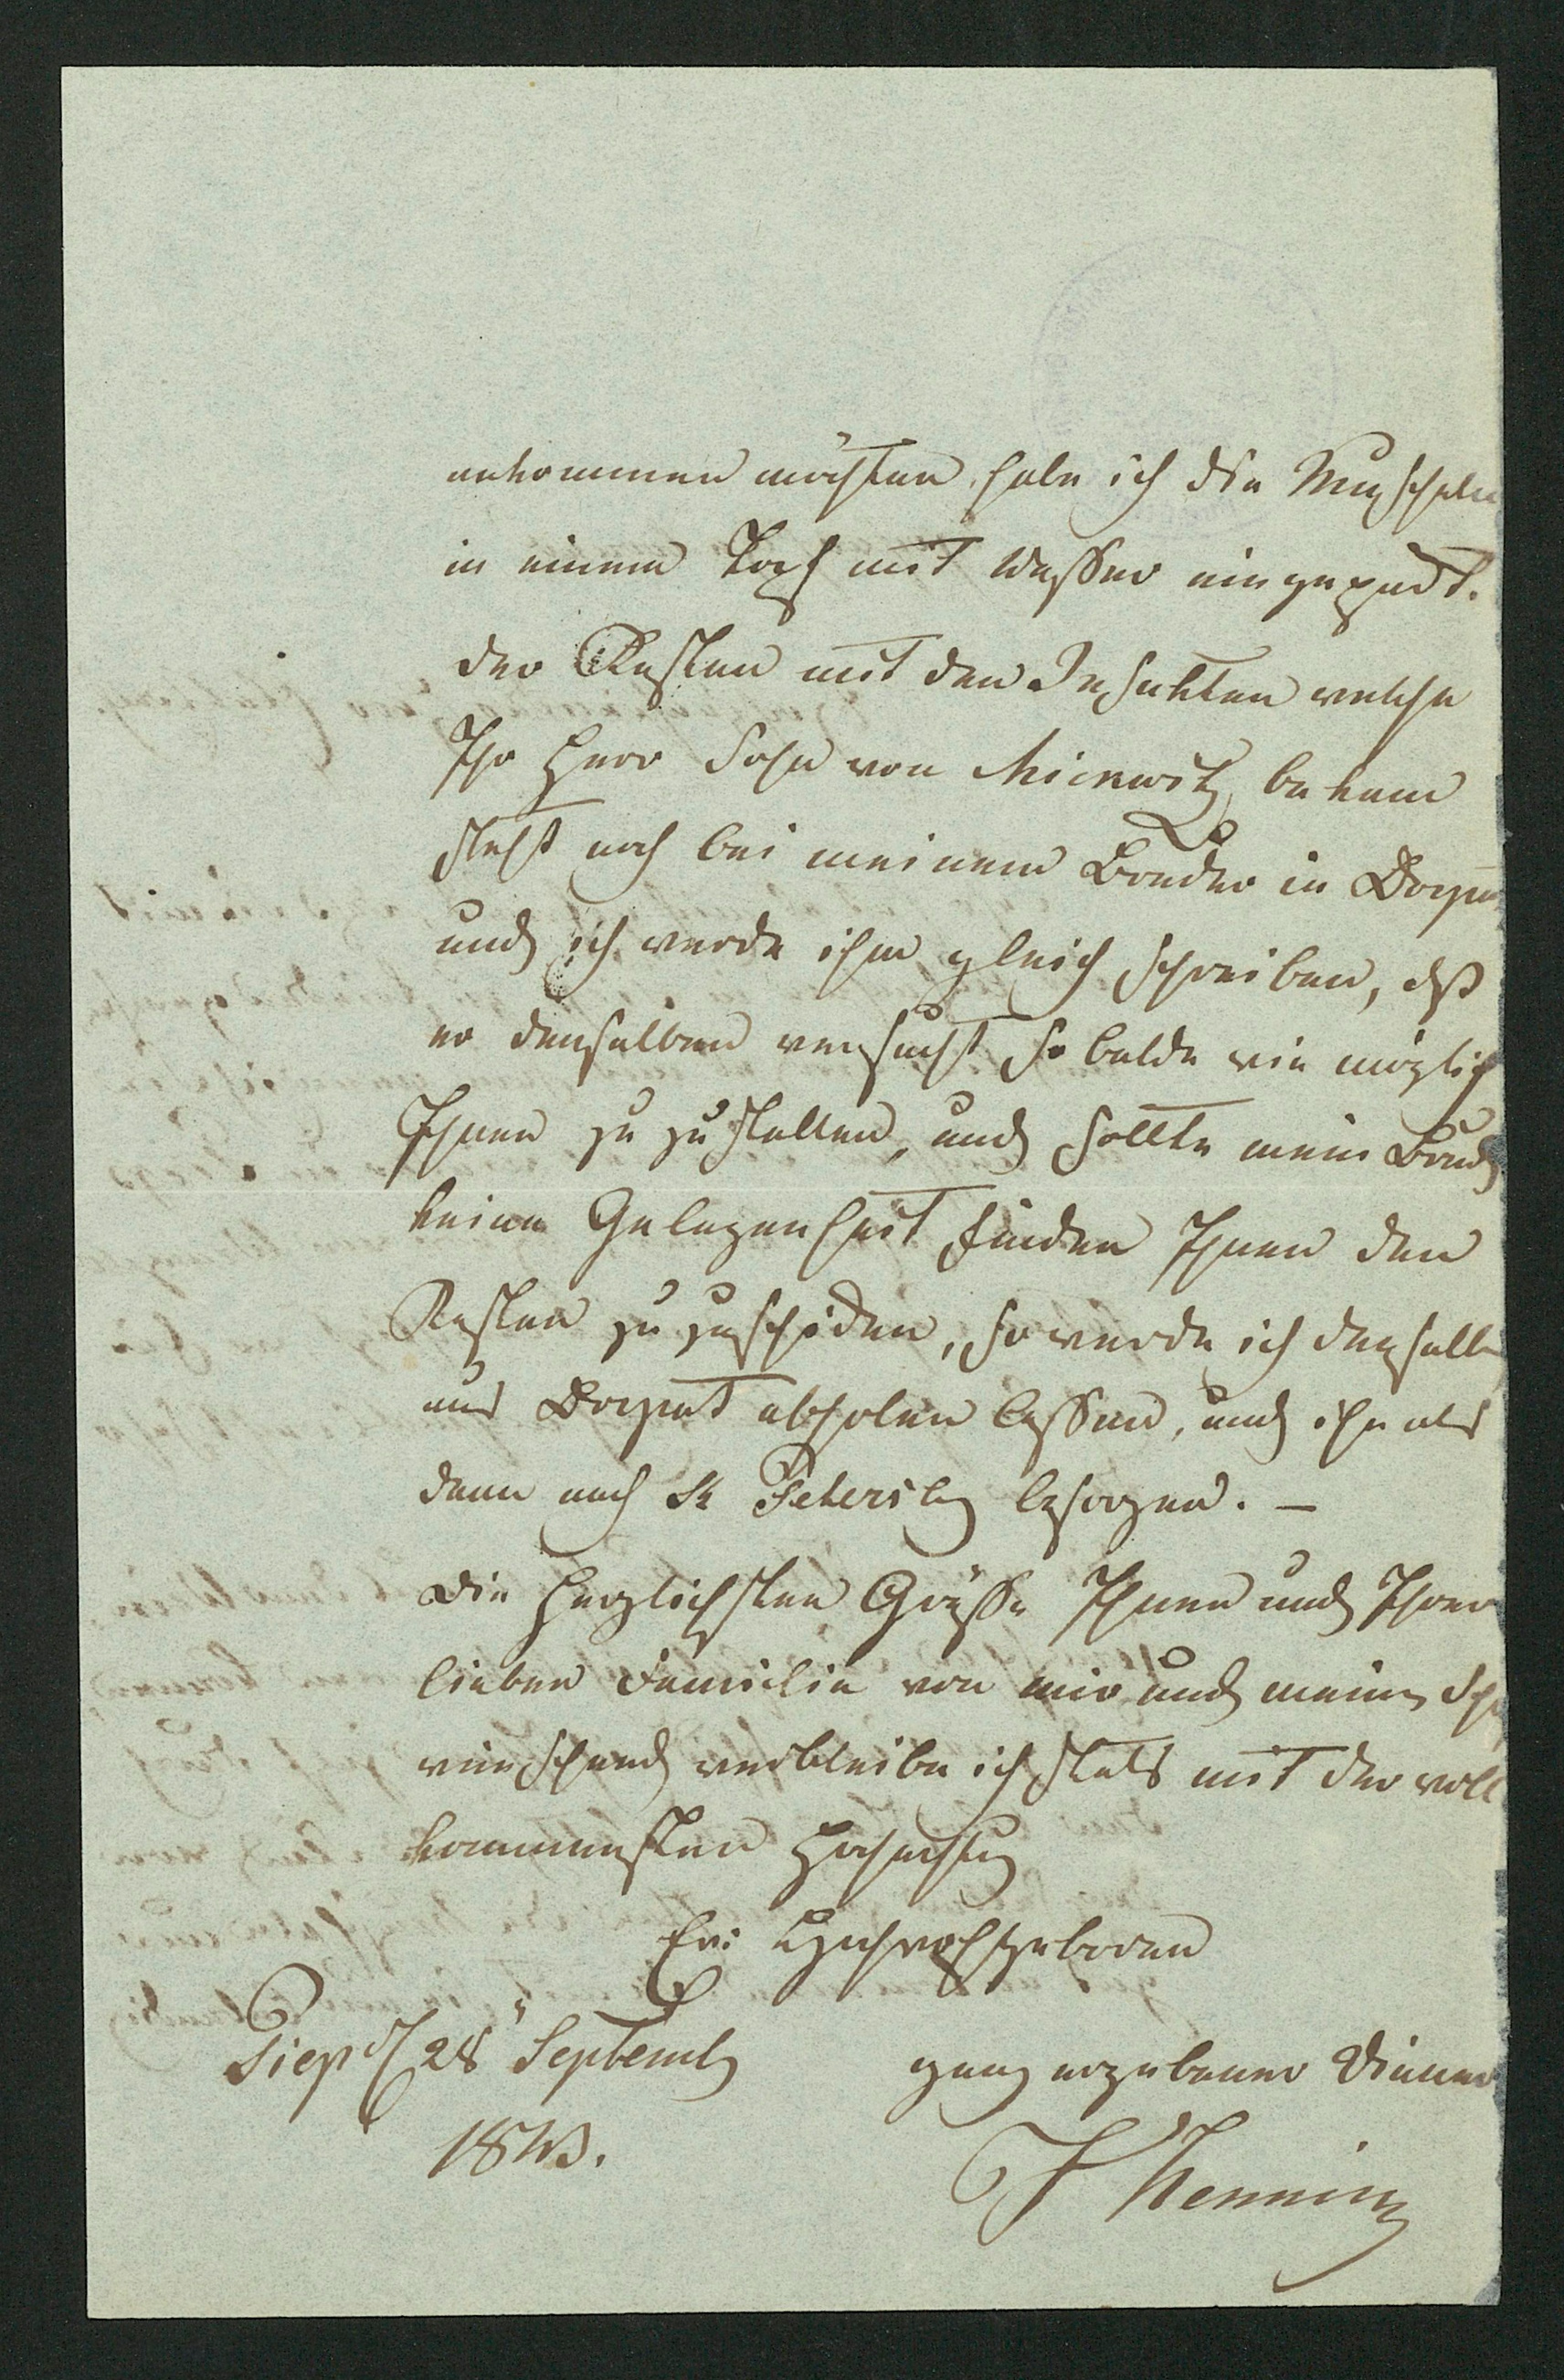 ankommen möchten habe ich die Muscheln
in einem Topf mit Wasser eingepackt.
der Kasten mit den Insekten welche
Ihr Herr Sohn von Mickwitz bekam
steht noch bei meinem Bruder in Dorpat
und ich werde ihm gleich schreiben, daß
er denselben versucht so balde wie möglich
Ihnen zu zu stellen, und sollte mein Bruder
keine Gelegenheit finden Ihnen den
Kasten zu zuschicken, so werde ich denselben
aus Dorpat abholen lassen, und ihn als
dann nach St Petersbg besorgen. —
Die herzlichsten Grüsse Ihnen und Ihrer
lieben Familie von mir und meinen
wünschend verbleibe ich stets mit der voll
kommensten Hochachtung
Ew: Hochwohlgeboren
Piep d 28" Septembr
ganz ergebener Diener
1843.
F Henning